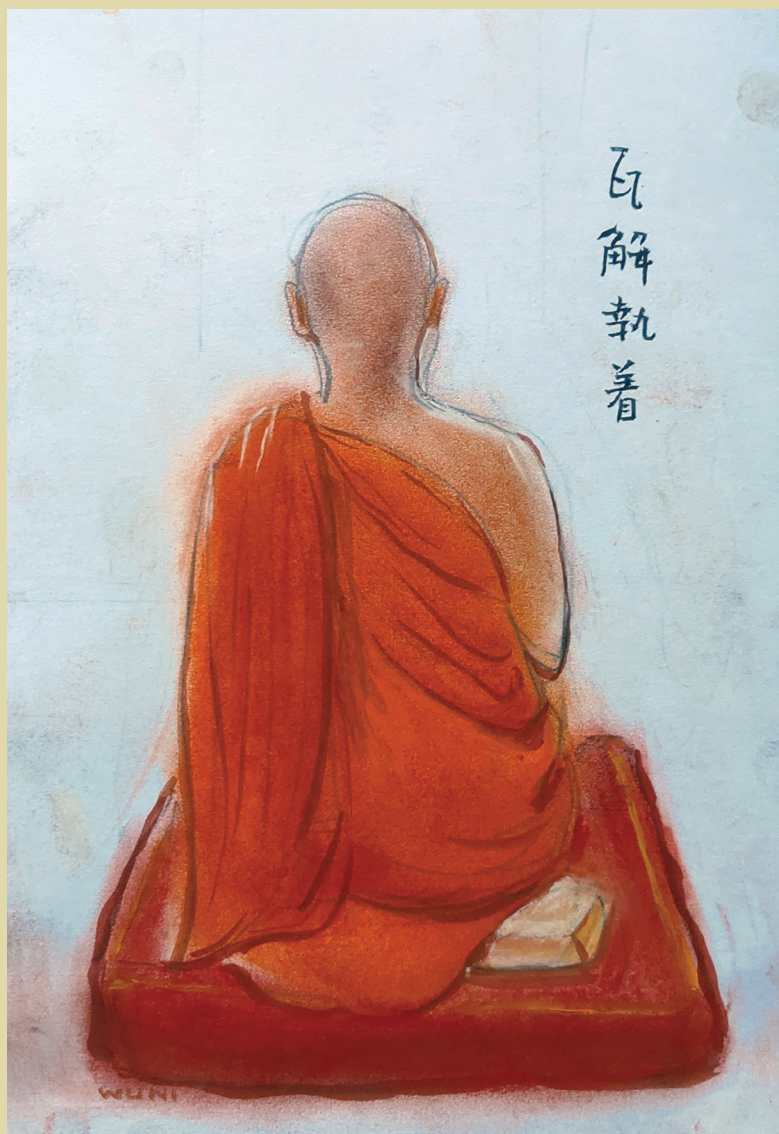 瓦解執着
WUNI